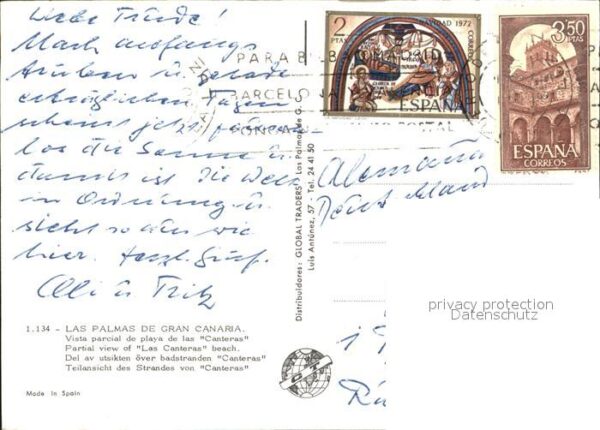 Liebe Freunde!
Nach anfangs
trüben u. gerade
erträglichen Tagen
scheint jetzt pausen-
los die Sonne u.
damit ist die Welt
in Ordnung u.
sieht so aus wie
hier. Herzl. Grüße
Olli u. Fritz
1.134 - LAS PALMAS DE GRAN CANARIA.
Vista parcial de playa de las "Canteras"
Partial view of "Las Canteras" beach.
Del av utsikten över badstranden "Canteras"
Teilansicht des Strandes von "Canteras"
Made in Spain
Distribuidores: GLOBAL TRADERS Las Palmas de G. C.
Luis Antúnez, 57 - Tel. 24 41 50
2
PTAS
NAVIDAD 1972
CORREOS
ESPAÑA
3,50
PTAS
ESPAÑA
CORREOS
PARA
MADRID
BARCELO
VALENCIA
POSTAL
Alemania
Deutschland
privacy protection
Datenschutz